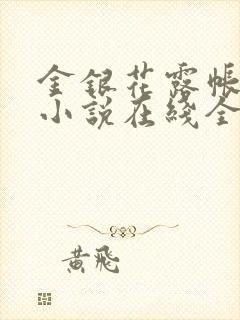 金银花露帐
小说在线全
黄飛